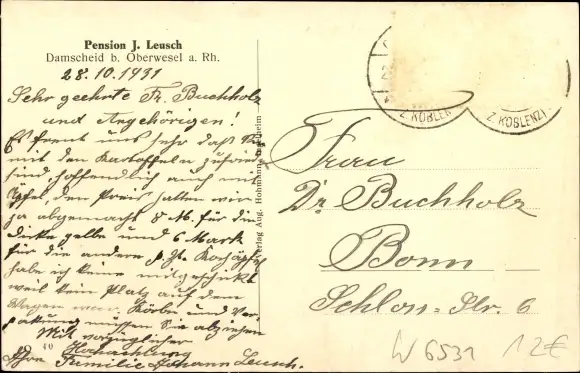 Pension J. Leusch
Damscheid b. Oberwesel a. Rh.
28.10.1931
Sehr geehrte Fr. Buchholz
und Angehörigen!
Es freut uns sehr daß Sie
mit den Kartoffeln zufrieden
sind, hoffendlich auch mit
Äpfel, den Preis hatten wir
ja abgemacht 8 M. für die
dicke gelbe und 6 Mark
für die andere p. Ztr. Kochäpfel
habe ich keine mitgeschickt
weil kein Platz auf dem
Wagen war. Körbe und Ver-
pakung müssen Sie abziehen
Mit vorzüglicher
Hochachtung
Ihre Familie Johann Leusch.
40
Verlag Aug. Hohmann
Z. KOBLEN
Z. KOBLENZ)
Frau
Dr. Buchholz
Bonn
Schloss-Str. 6
W 6531 12€